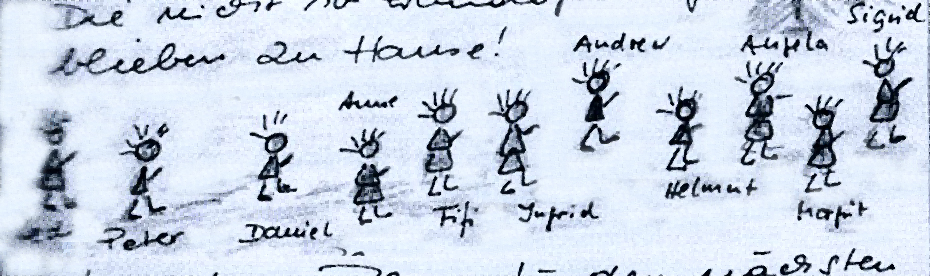 Die nicht so
blieben zu Hause!
Sigrid
Andrew Angela
Anne
Helmut
Fifi Ingrid Margit
Peter Daniel
den nächsten